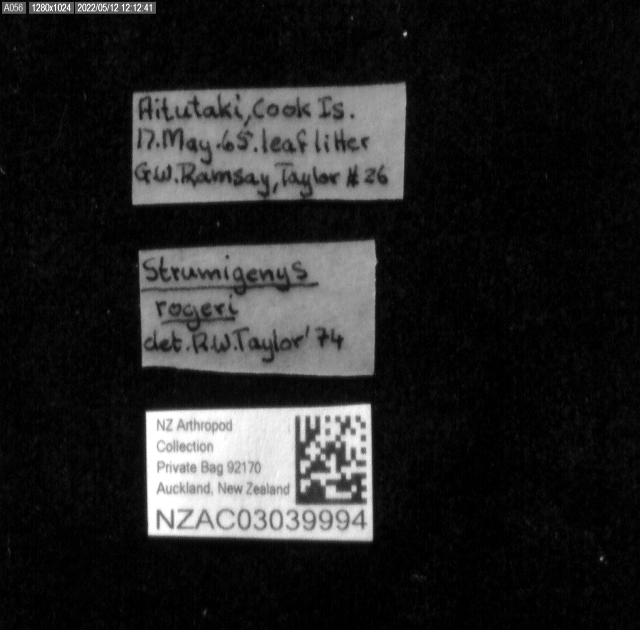 A056 1280x1024 2022/05/12 12:12:41
Aitutaki, Cook Is.
17.May.65.leaf litter
G.W.Ramsay, Taylor # 26
Strumigenys
rogeri
det.R.W.Taylor '74
NZ Arthropod
Collection
Private Bag 92170
Auckland, New Zealand
NZAC03039994